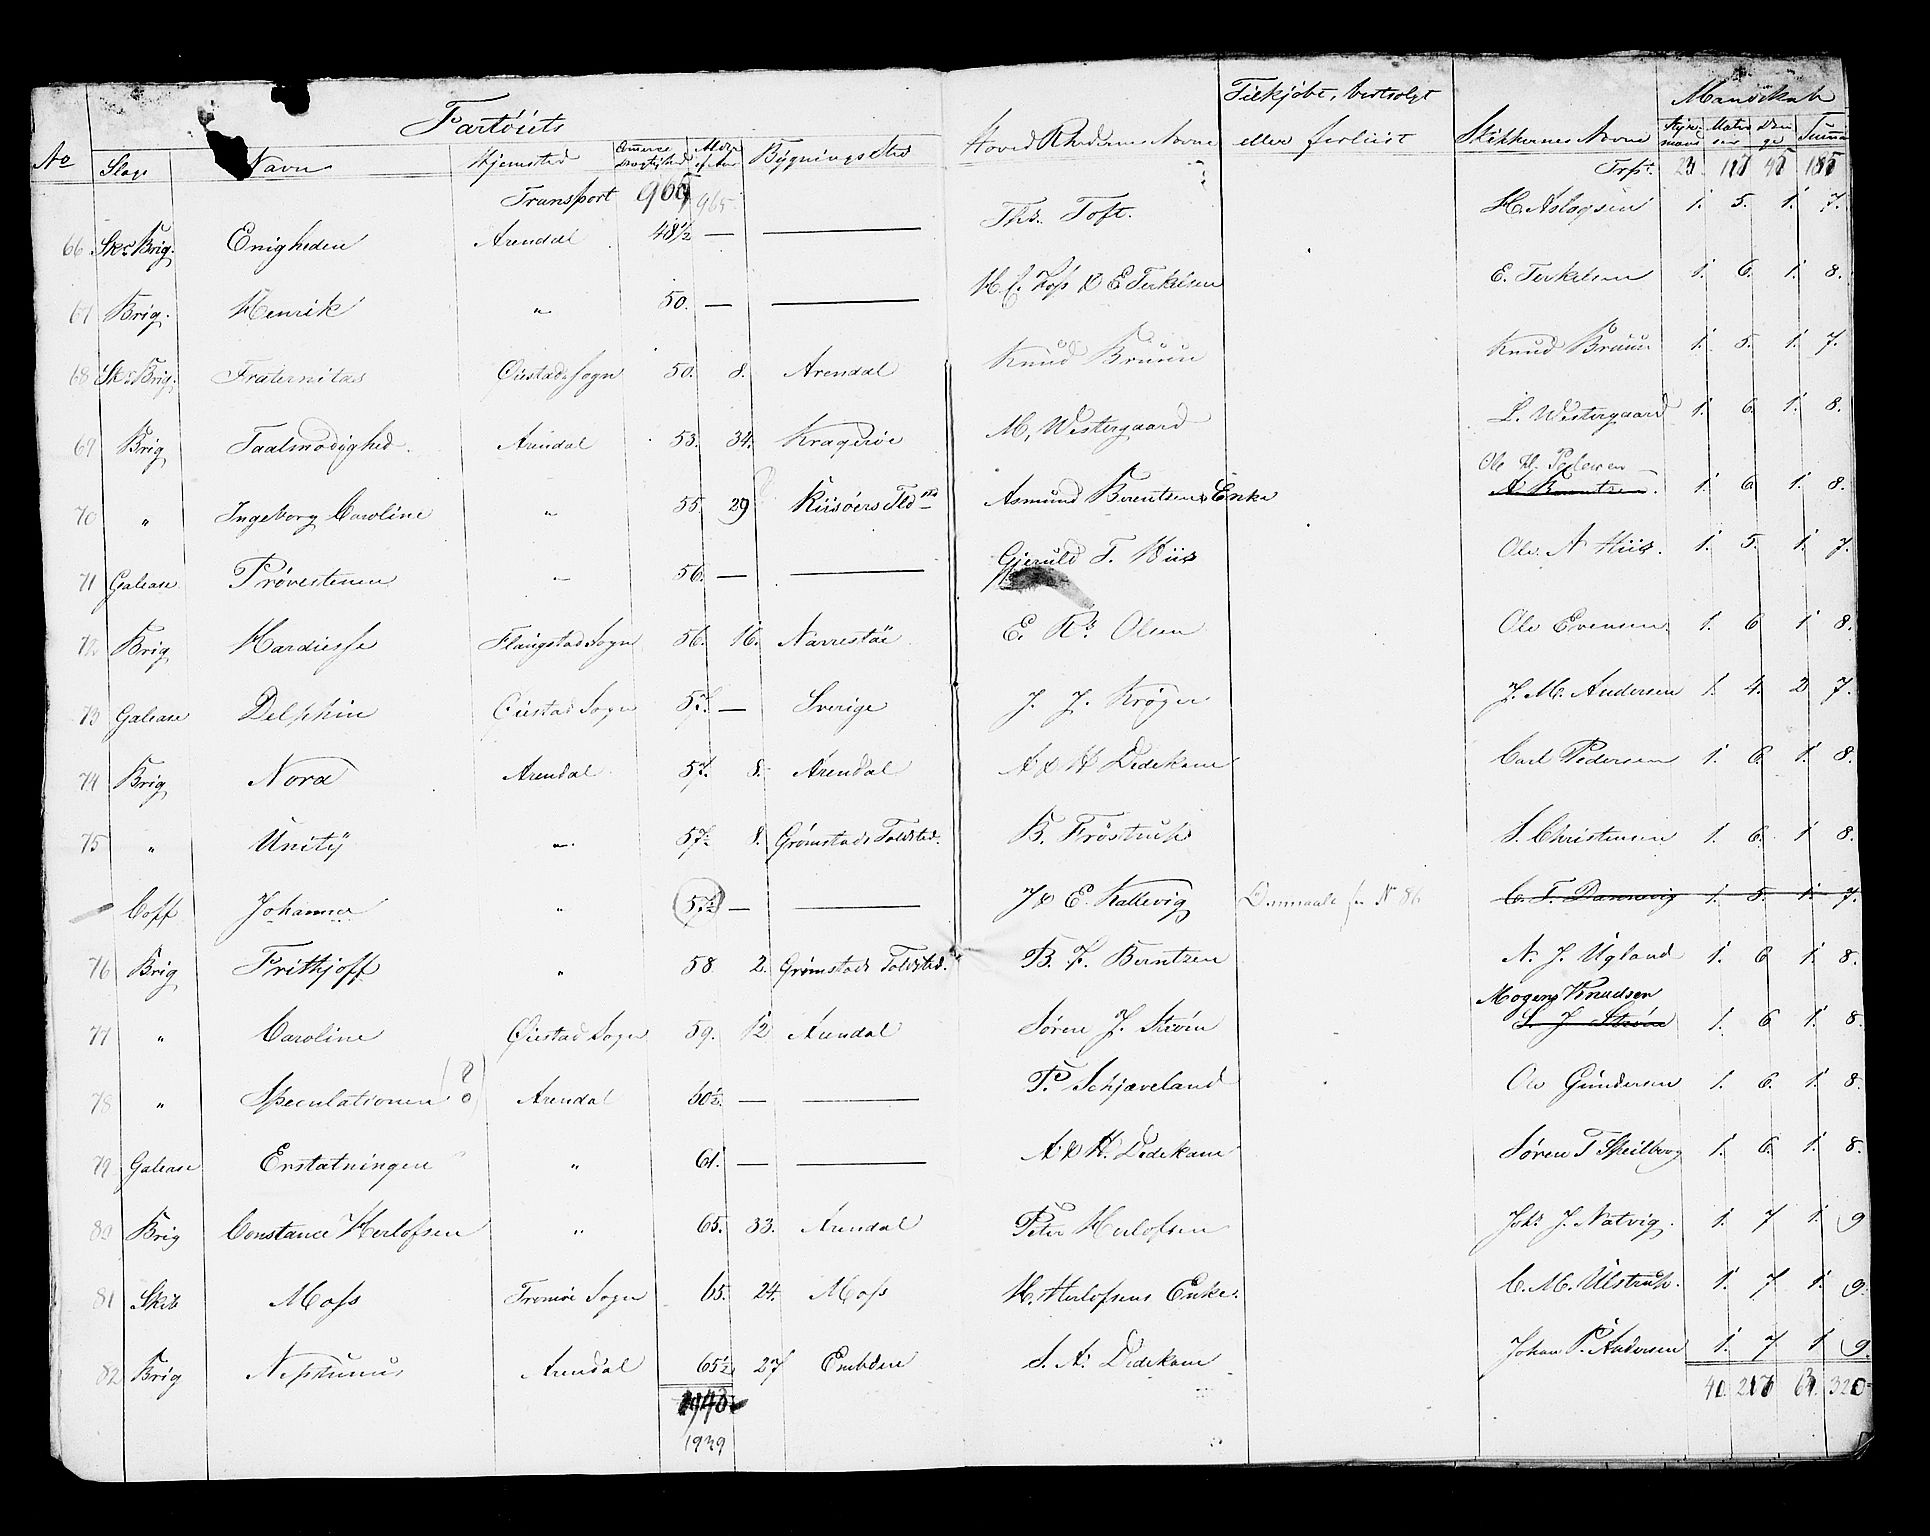 Fartöiets
Tilkjøbt, bortsolgt
Mandskab
No Slags Navn Hjemsted Bygnings Sted Hoved Rhedernes Navne eller forliist Skibbernes Navne Styrmænd Matroser Summa
Transport 965 965 Trspt. 23 117 45 185
66 Sk. Brig. Enigheden Arendal 48½ — — Ths. Toft. H. Aslagsen 1. 5. 1. 7.
67 Brig. Henrik " 50. — — E. Terkelsen 1. 6. 1. 8.
68 Sk. Brig. Fraternitas Øiestad Sogn 50. 8. Arendal Knud Bruun Knud Bruun 1. 5. 1. 7.
69 Brig Taalmodighed. Arendal 53. 34. Kragerøe M. Westergaard L. Westergaard 1. 6. 1. 8.
Ole H. Pedersen
70 " Ingeborg Caroline " 55. 29 Riisöers Tldstd Asmund Berentsens Enke A Berentsen. 1. 6. 1. 8
71 Galease Prøvestenen " 56. — — Gjeruld T. Hiis Ole A Hiis. 1. 5. 1. 7.
72 Brig Hardiesse Flangstad Sogn 56. 16. Narrestöe E. Rs. Olsen Ole Evensen. 1. 6 1 8.
73 Galease Delphin Øiestad Sogn 57. — Sverige J. J. Krøger J. M. Andersen 1. 4. 2 7.
74 Brig Nora Arendal 57. 8. Arendal A & H Dedekam Carl Pedersen 1. 6. 1. 8.
75 " Unity " 57. 8. Grömstads Toldsted. B. Fröstrup S. Christensen 1. 6. 1 8.
Coff Johanna " 57½ — — J & E. Kallevig Ommaalt No 86 C. T. Dannevig 1. 5. 1. 7.
76 Brig Frithjoff " 58 2. Grömstads Toldsted. B. F. Berntzen N. J. Ugland 1. 6 1. 8.
Mogens Knudsen
77 " Caroline Øiestad Sogn 59. 12 Arendal Søren J. Ström S. J Ström 1. 6 1. 8.
78 " Speculationen (?) Arendal 60½. — — P. Schjæveland Ole Gundersen 1. 6. 1. 8.
79 Galease Erstatningen " 61. — — A & H. Dedekam Søren T Skeilbrog 1. 6. 1. 8.
80 Brig Constance Herlofsen " 65. 33. Arendal Peter Herlofsen Johs J. Natvig. 1. 7 1. 9
81 Skib Moss Tromöe Sogn 65. 24. Moss H. Herlofsens Enke. C. M. Ulstrup. 1. 7 1. 9.
82 Brig Neptunus Arendal 65½ 27 Embden S. A. Dedekam Johan P. Andersen 1. 7 1 9.
40. 217 63. 320
1939